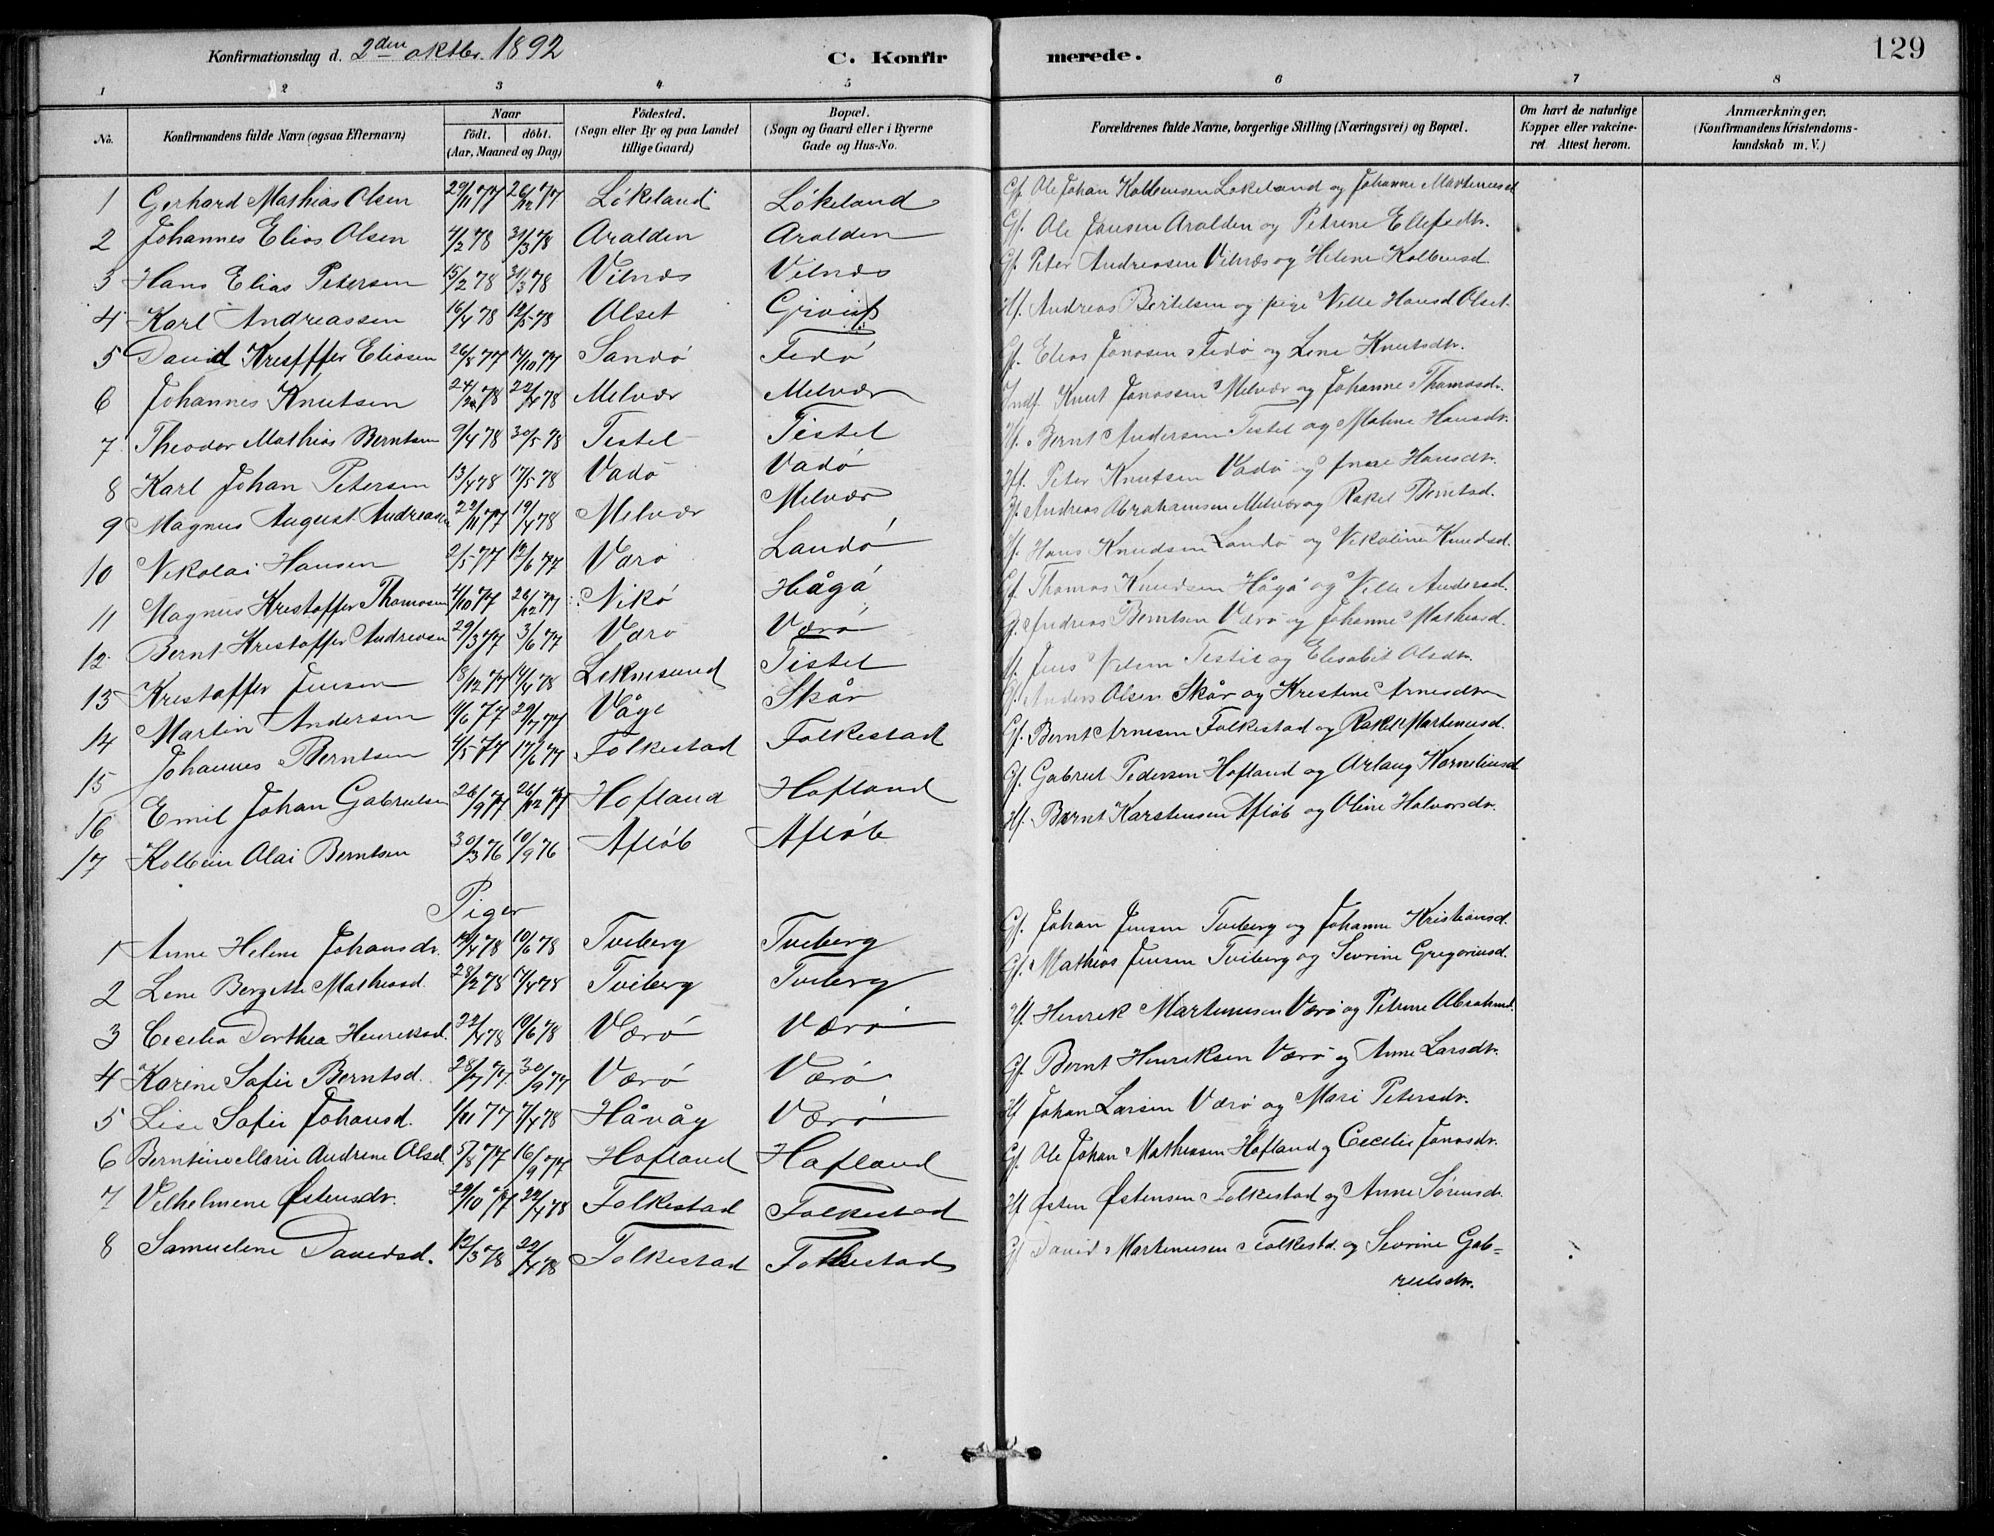 Konfirmationsdag d. 2den oktbr. 1892
C. Konfirmerede.
129
1 2 3 4 5 6 7 8
No. Konfirmandens fulde Navn (ogsaa Efternavn) Naar födt. döbt. (Aar, Maaned og Dag) Födested. (Sogn eller By og paa Landet tillige Gaard) Bopæl. (Sogn og Gaard eller i Byerne Gade og Hus-No. Forældrenes fulde Navne, borgerlige Stilling (Næringsvei) og Bopæl. Om havt de naturlige Kopper eller vakcineret. Attest herom. Anmærkninger, (Konfirmandens Kristendomskundskab m. V.)
1 Gerhard Mathias Olsen 29/11 77 26/12 77 Lökeland Lökeland Gf. Ole Johan Kolbensen Lökeland og Johanne Martinusd
2 Johannes Elias Olsen 4/2 78 31/3 78 Aralden Aralden Gf. Ole Jansen Aralden og Petrine Ellefsdtr.
3 Hans Elias Petersen 15/2 78 31/3 78 Vilnæs Vilnæs Gf. Peter Andreasen Vilnæs og Helene Kolbensd
4 Karl Andreassen 16/4 78 12/5 78 Olset Hf. Andreas Bertelsen og pige Nille Hansd Olset.
5 David Kristoffer Eliasen 26/8 77 14/10 77 Sandö Fedö Gf. Elias Jonasen Fedö og Lene Knutsdtr.
6 Johannes Knutsen 24/2 78 22/4 78 Melvær Melvær Indf. Knut Jonassen Melvær og Johanne Thomasdr.
7 Theodor Mathias Berntsen 9/4 78 30/5 78 Tistel Tistel Hf. Bernt Andersen Tistel og Malene Hansdr.
8 Karl Johan Petersen 13/4 78 17/5 78 Vadö Vadö Hf. Peter Knutsen Vadö og Hansdr.
9 Magnus August Andreasen 22/11 77 19/4 78 Melvær Melvær Gf. Andreas Abrahamsen Melvær og Rakel Berntsd.
10 Nikolai Hansen 2/5 77 12/6 77 Værö Landö Hf. Hans Knudsen Landö og Nikoline Knudsd.
11 Magnus Kristoffer Thomasen 4/10 77 26/12 77 Nikö Hågå Gf. Thomas Knudsen Hågå og Nille Andersd.
12 Bernt Kristoffer Andreasen 29/3 77 3/6 77 Værö Værö Gf. Andreas Berntsen Værö og Johanne Mathiasd.
13 Kristoffer Jensen 8/12 77 14/4 78 Leknesund Tistel Hf. Jens Nilsen Tistel og Elisabet Olsdtr.
14 Martin Andersen 11/6 77 29/7 77 Våge Skår Gf. Anders Olsen Skår og Kristine Arnesdtr
15 Johannes Berntsen 4/5 77 17/6 77 Folkestad Folkestad Gf. Bernt Arnesen Folkestad og Rakel Martinusd.
16 Emil Johan Gabrielsen 26/9 77 26/12 77 Hofland Hofland Gf. Gabriel Pedersen Hofland og Arlaug Korneliusd
17 Kolbein Olai Berntsen 30/3 76 10/9 76 Aflöb Aflöb Hf. Bernt Karstensen Aflöb og Oline Halvorsdr.
Piger
1 Anne Helene Johansdr. 14/4 78 10/6 78 Tveberg Tveberg Gf. Johan Jensen Tveberg og Johanne Kristiansd.
2 Lene Bergitte Mathiasd. 28/2 78 14/4 78 Tviberg Tviberg Gf. Mathias Jensen Tviberg og Sevrine Gregoriusd.
3 Cecelia Dorthea Henriksd. 22/4 78 10/6 78 Værö Værö Hf. Henrik Martinusen Værö og Petrine Abrahmd.
4 Karine Sofie Berntsd. 28/7 77. 30/9 77 Værö Værö Gf. Bernt Henriksen Værö og Anne Larsdtr.
5 Lise Sofie Johansd. 1/11 77 7/4 78 Håvåg Værö Hf Johan Larsen Værö og Mari Petersdr.
6 Berntine Marie Andrene Olsd. 5/8 77 16/9 77 Hofland Hofland Gf. Ole Johan Mathiassen Hofland og Cecelie Jonasdr.
7 Vilhelmene Östensdr. 29/10 77 22/4 78 Folkestad Folkestad Hf Østen Østensen Folkestad og Anne Sörensdr.
8 Samueline Davidsd. 12/3 78 22/4 78 Folkestad Folkestad Gf David Martinusen Folkestd. og Sevrine Gab=
rielsdtr.